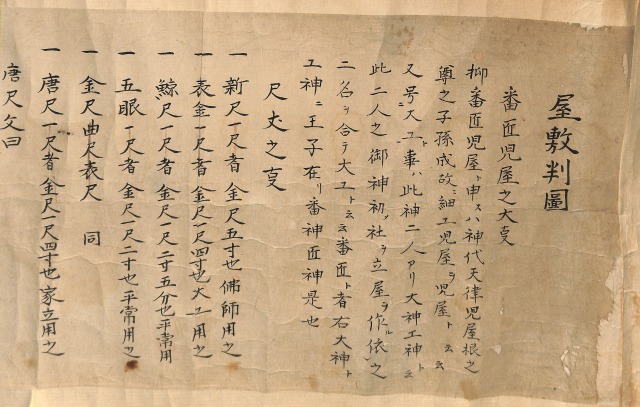 屋敷判圖
番匠児屋之大㕝
抑番匠児屋ト申スハ神代天津児屋根之
尊之子孫成故ニ細工児屋ヲ児屋ト云云
又号大工ト事ハ此神二人アリ大神工神ト云
此二人之御神初ノ社ヲ立屋ヲ作ル依之
二名ヲ合テ大工ト云云番匠ト者右大神ト
工神ニ王子在リ番神匠神是也
尺丈之㕝
一 新尺一尺者 金尺五寸也 佛師用之
一 表金一尺者 金尺一尺四寸也 大工用之
一 鯨尺一尺者 金尺一尺二寸五分也 平常用
一 五眼一尺者 金尺一尺二寸也 平常用之
一 金尺曲尺表尺 同
一 唐尺一尺者 金尺一尺四寸也 家立用之
唐尺文曰